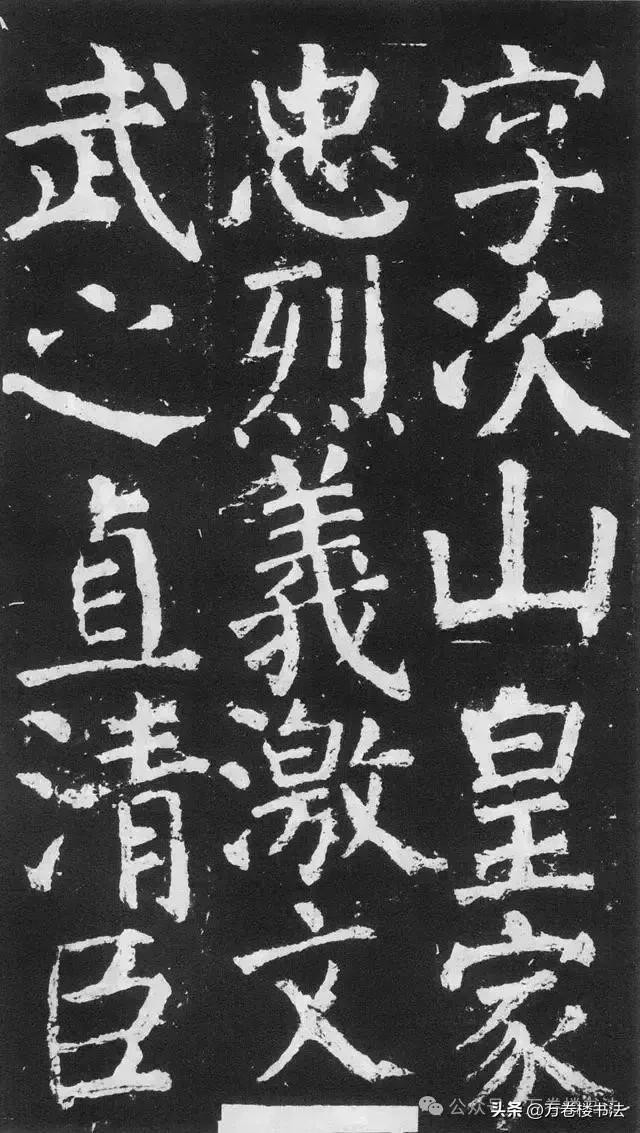 字次山皇家
忠烈義激文
武之直清臣
头条@万卷楼书法